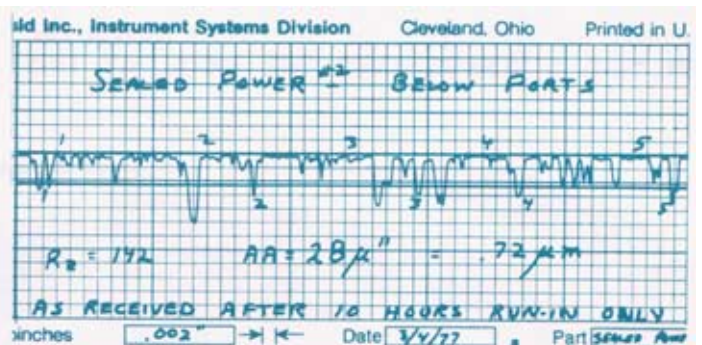 ald Inc., Instrument Systems Division Cleveland, Ohio Printed in U.
SEALED POWER #2 BELOW PORTS
1 2 3 4 5
1 2 3 4 5
Rz = 142 AA = 28µ" = .72 µm
AS RECEIVED AFTER 10 HOURS RUN-IN ONLY
inches .002" Date 3/4/77 Part SEALED